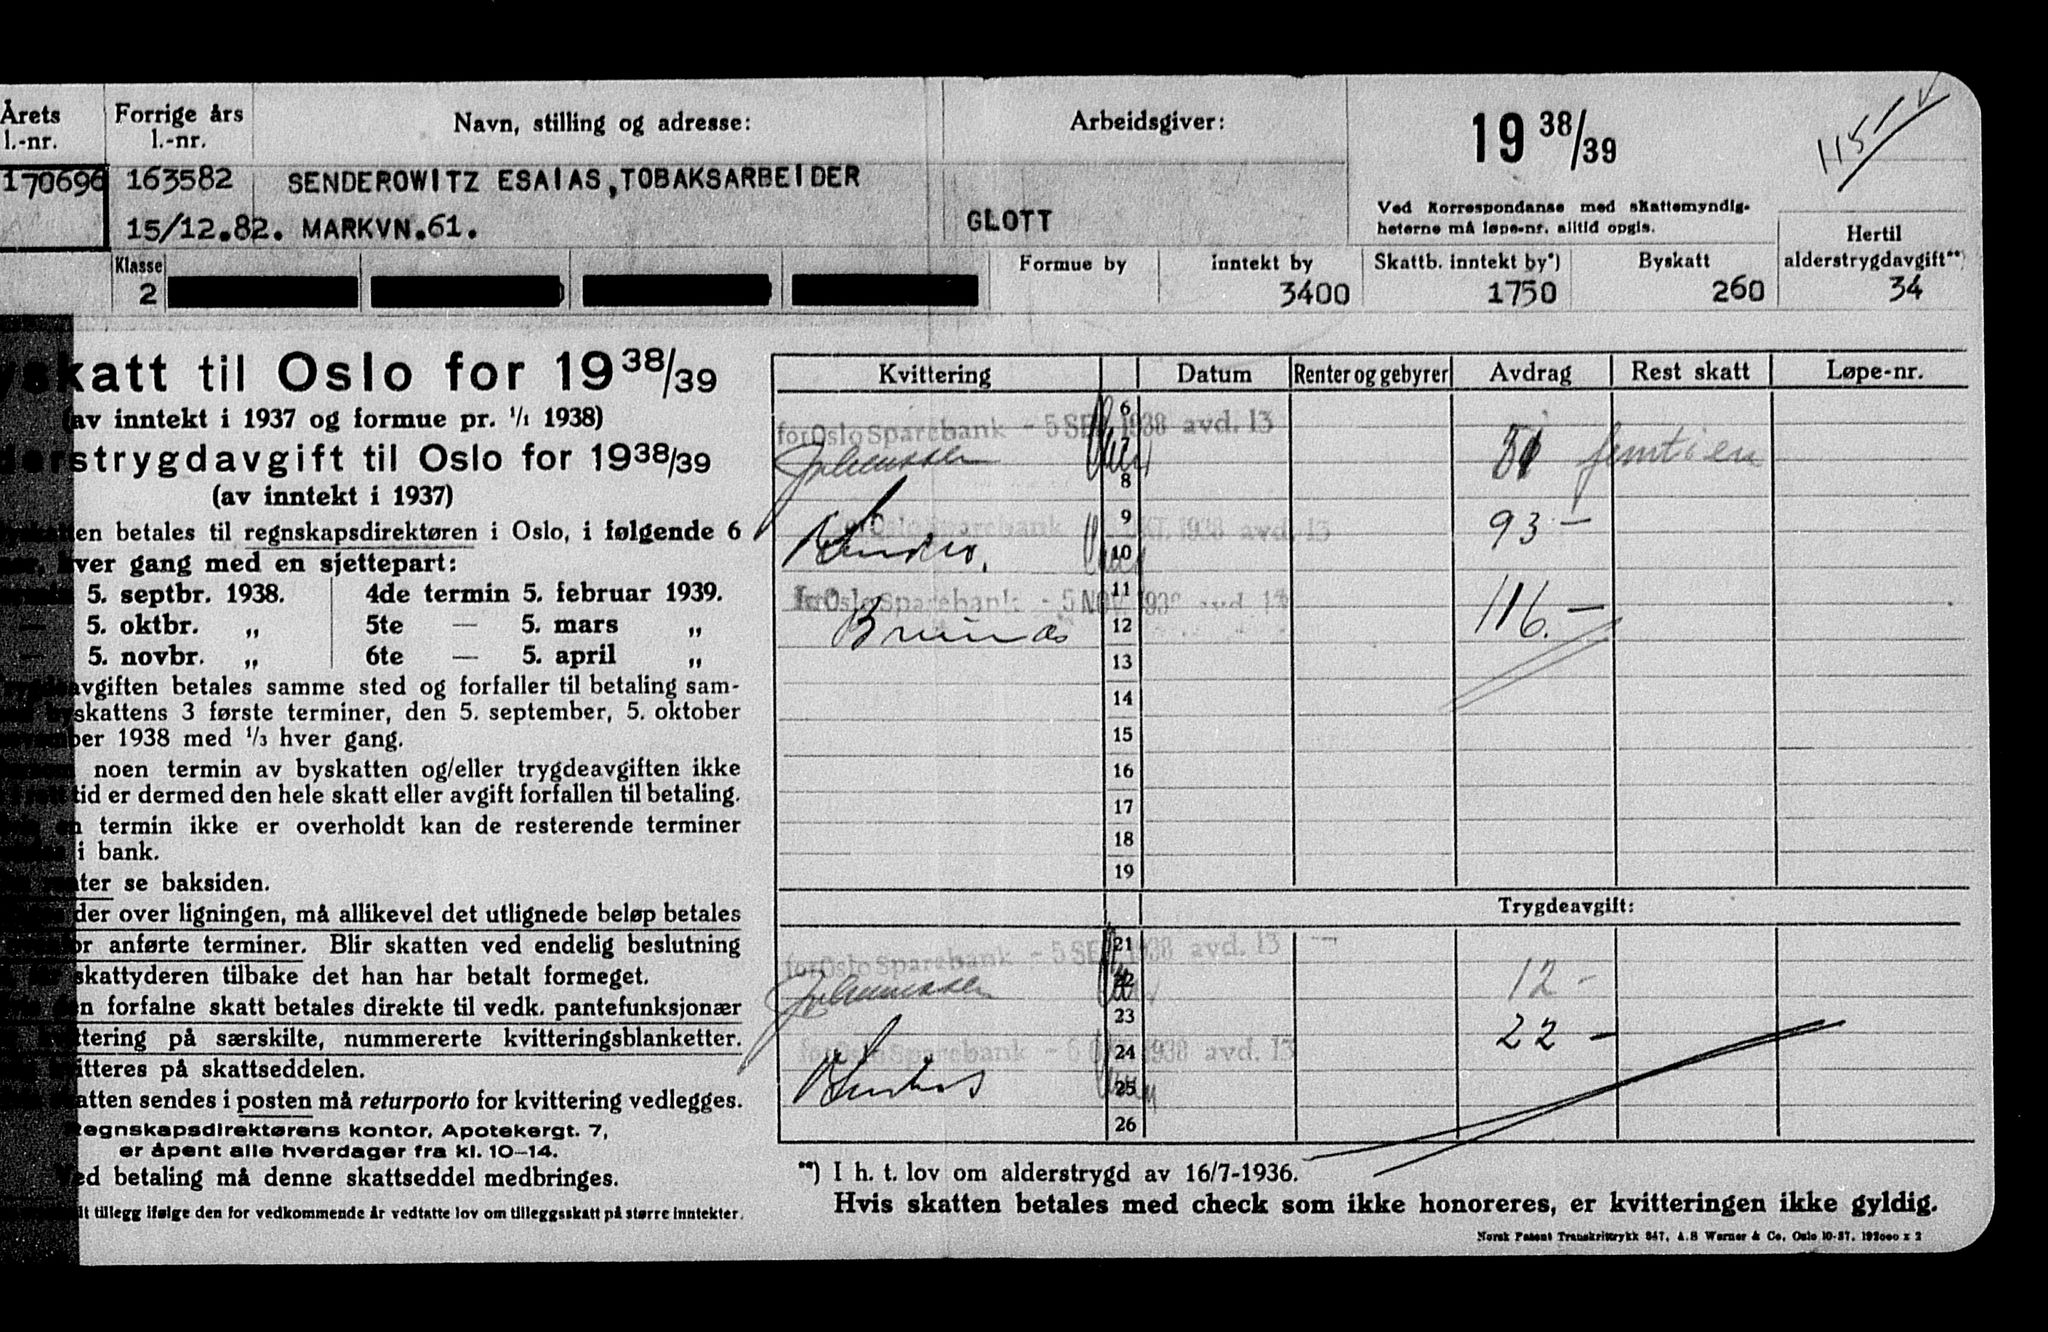 Årets l.-nr.
Forrige års l.-nr.
Navn, stilling og adresse:
Arbeidsgiver:
19 38/39
115-
170696 163582 SENDEROWITZ ESAIAS, TOBAKSARBEIDER
15/12.82. MARKVN.61.
GLOTT
Ved korrespondanse med skattemyndig-
heterne må løpe-nr. alltid opgis.
Klasse
2
Formue by
Inntekt by
3400
Skattb. inntekt by*)
1750
Byskatt
260
Hertil
alderstrygdavgift**)
34
skatt til Oslo for 19 38/39
(av inntekt i 1937 og formue pr. 1/1 1938)
erstrygdavgift til Oslo for 19 38/39
(av inntekt i 1937)
en betales til regnskapsdirektøren i Oslo, i følgende 6
hver gang med en sjettepart:
5. septbr. 1938. 4de termin 5. februar 1939.
— 5. oktbr. „ 5te — 5. mars „
— 5. novbr. „ 6te — 5. april „
avgiften betales samme sted og forfaller til betaling sam-
byskattens 3 første terminer, den 5. september, 5. oktober
ber 1938 med 1/3 hver gang.
noen termin av byskatten og/eller trygdeavgiften ikke
tid er dermed den hele skatt eller avgift forfallen til betaling.
termin ikke er overholdt kan de resterende terminer
i bank.
se baksiden.
der over ligningen, må allikevel det utlignede beløp betales
anførte terminer. Blir skatten ved endelig beslutning
skattyderen tilbake det han har betalt formeget.
den forfalne skatt betales direkte til vedk. pantefunksjonær
kvittering på særskilte, nummererte kvitteringsblanketter.
kvitteres på skattseddelen.
skatten sendes i posten må returporto for kvittering vedlegges.
Regnskapsdirektørens kontor, Apotekergt. 7,
er åpent alle hverdager fra kl. 10-14.
Ved betaling må denne skattseddel medbringes.
tillegg ifølge den for vedkommende år vedtatte lov om tilleggsskatt på større inntekter.
Kvittering Datum Renter og gebyrer Avdrag Rest skatt Løpe-nr.
6
for Oslo Sparebank - 5 SEP. 1938 avd. 13
7
Johannessen 51 femtien
8
9
for Oslo Sparebank OKT. 1938 avd. 13
93 -
10
11
for Oslo Sparebank - 5 NOV. 1938 avd. 13
116. -
12
13
14
15
16
17
18
19
Trygdeavgift:
21
for Oslo Sparebank - 5 SEP. 1938 avd. 13
22
Johannessen 12 -
23
22 -
24
for Oslo Sparebank - 6 OKT. 1938 avd. 13
25
26
**) I h. t. lov om alderstrygd av 16/7-1936.
Hvis skatten betales med check som ikke honoreres, er kvitteringen ikke gyldig.
Norsk Patent Transkrittrykk 847, A.S Werner & Co. Oslo 10-37. 192000 x 2